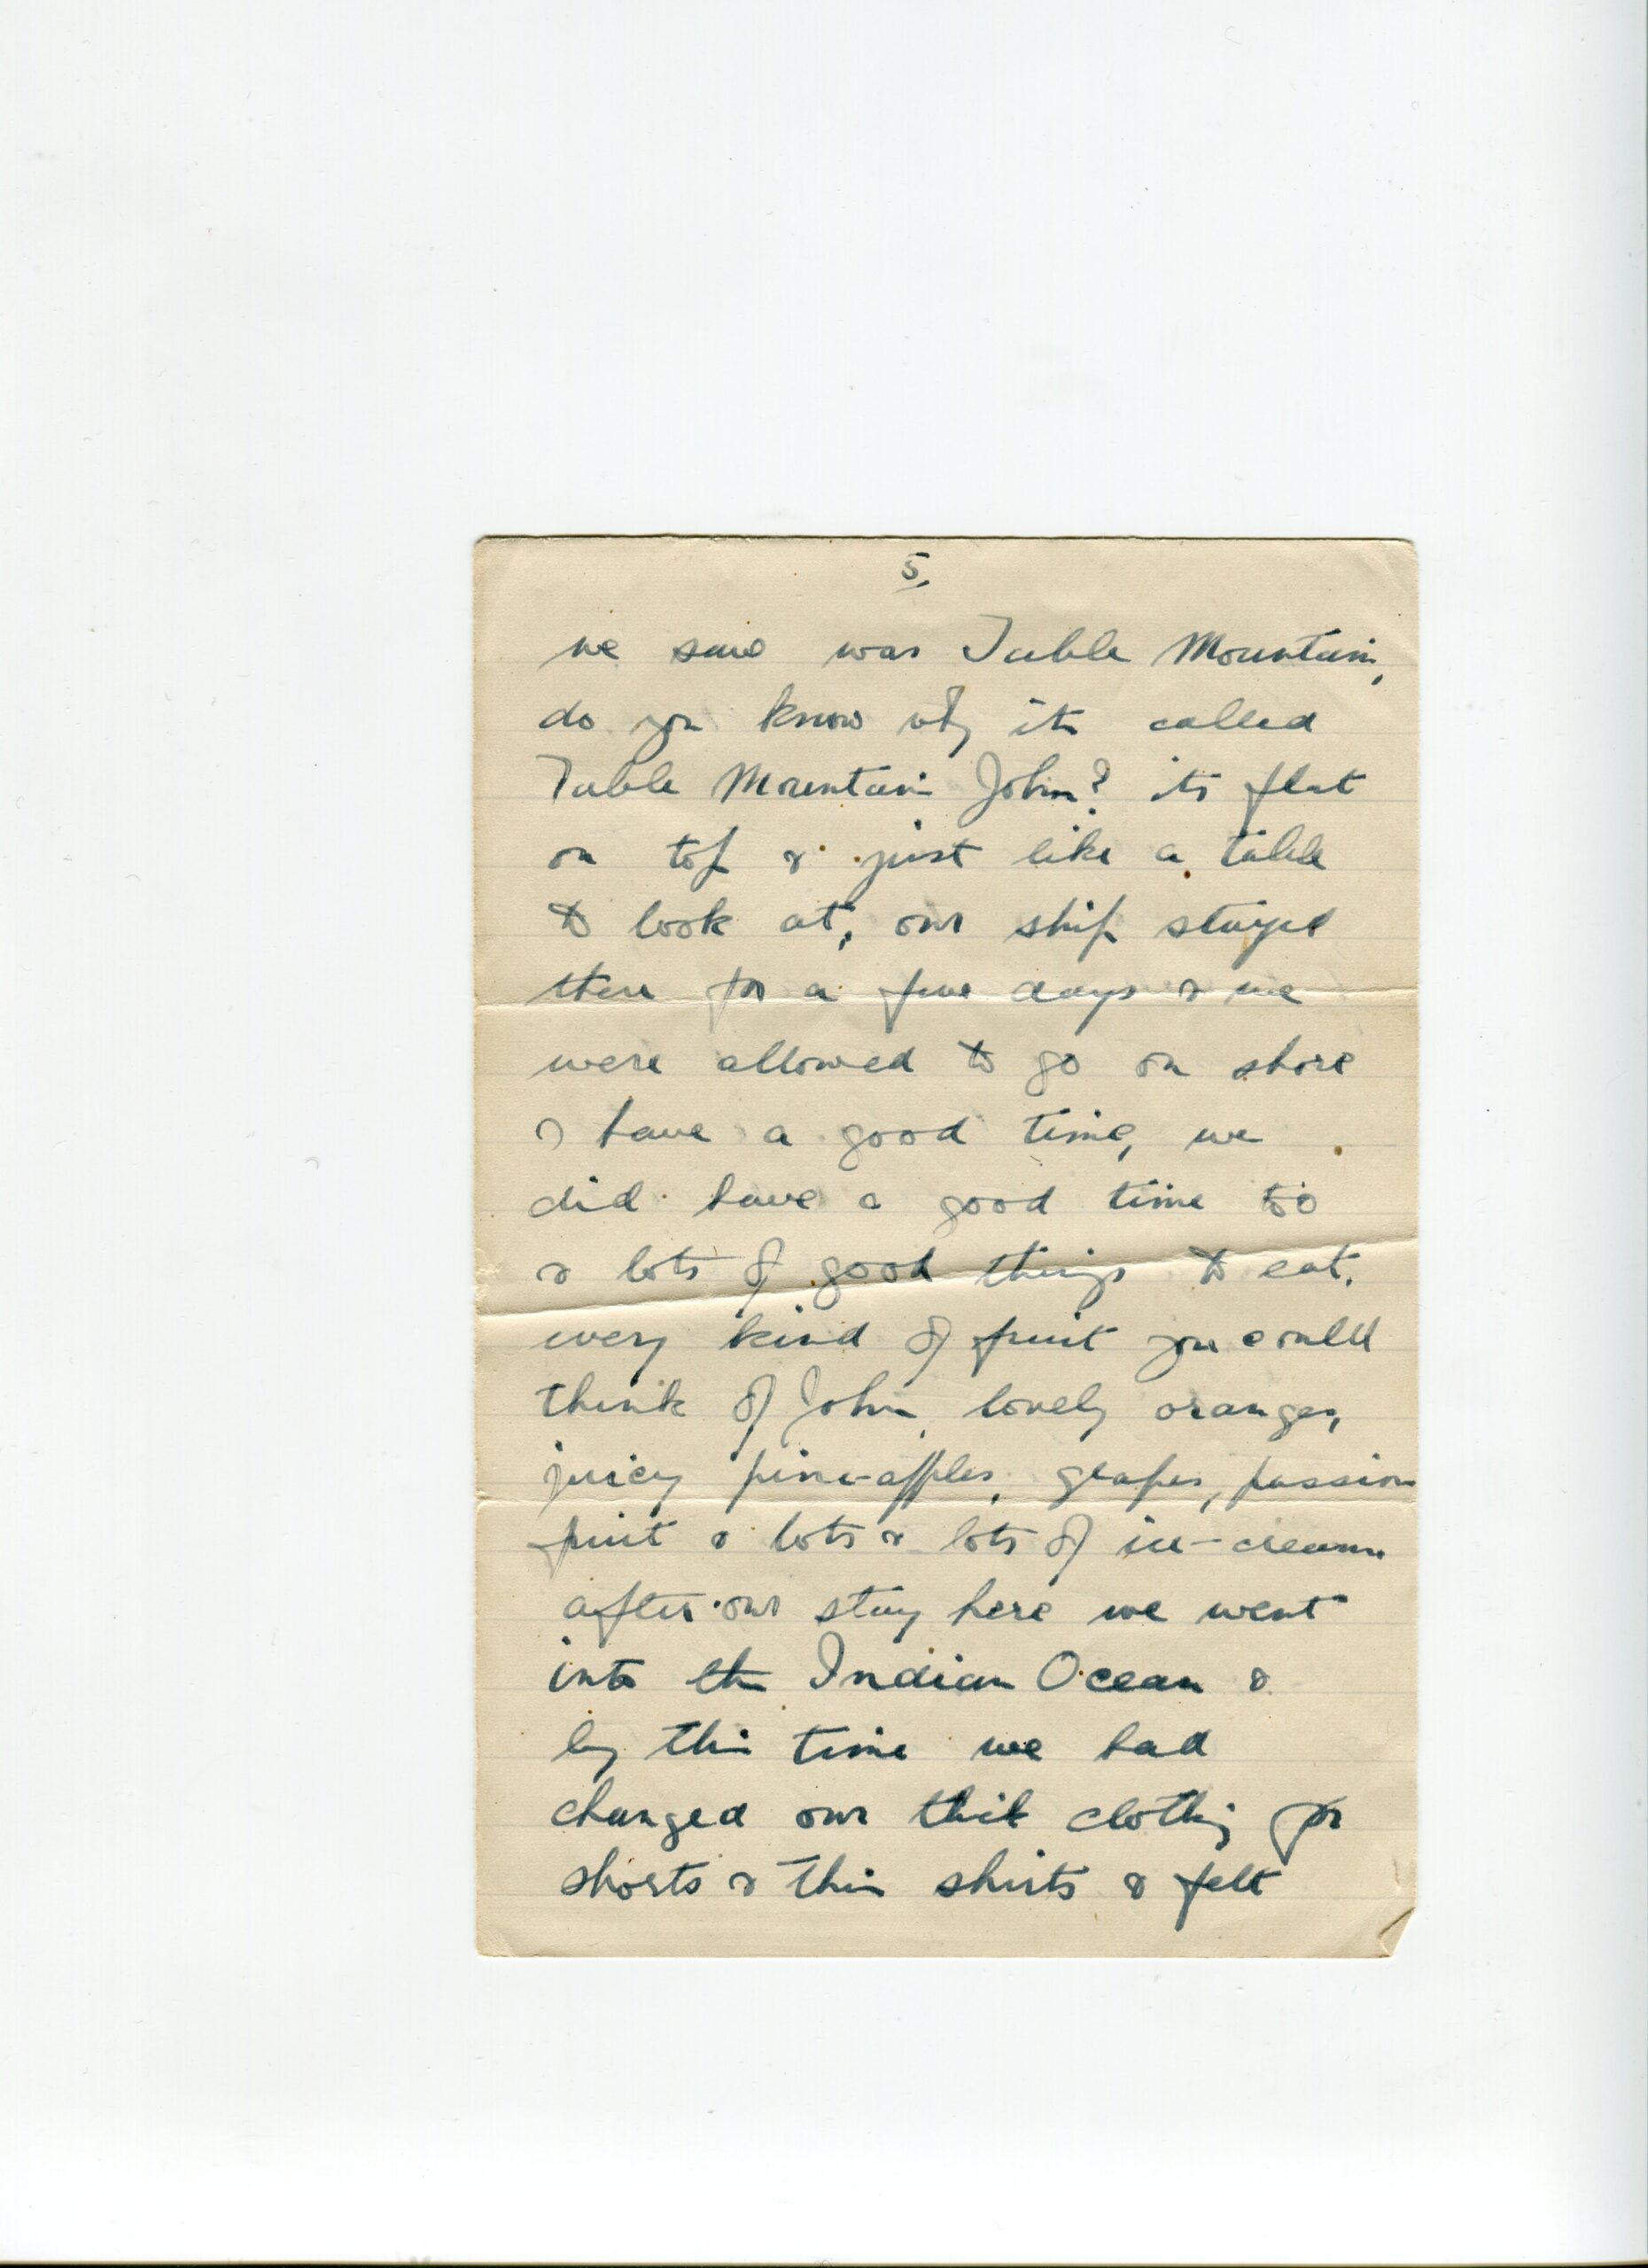 5,
we saw was Table Mountain,
do you know why its called
Table Mountain John? its flat
on top & just like a table
to look at, our ship stayed
there for a few days & we
were allowed to go on shore
& have a good time, we
did have a good time too
& lots of good things to eat.
every kind of fruit you could
think of John, lovely oranges,
juicy pine-apples, grapes, passion
fruit & lots & lots of ice-cream.
after our stay here we went
into the Indian Ocean &
by this time we had
changed our thick clothing for
shorts & thin shirts & felt